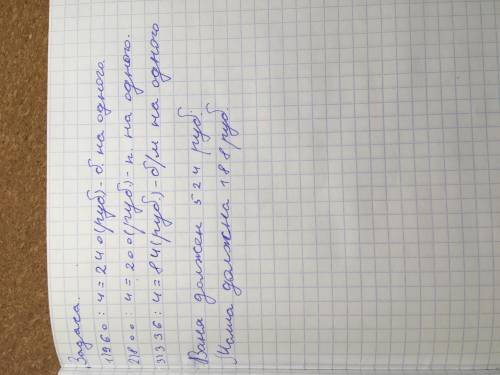 Задача.
1)960 : 4 = 240(руб)-б. на одного
2)800 : 4 = 200(руб)-п. на одного.
3)336 : 4 = 84(руб.)-б/м на одного
Ваня должен 524 руб.
Маша должна 188 руб.